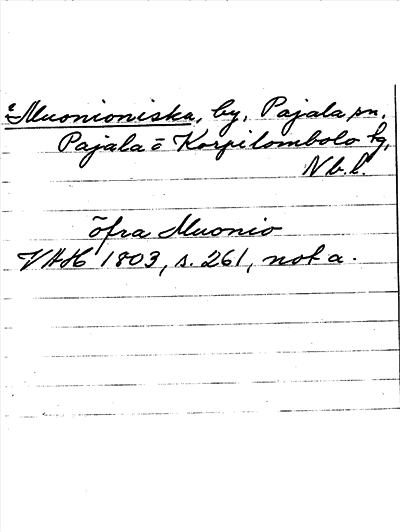 Muonioniska, by, Pajala sn,
Pajala o Korpilombolo tg,
Nb.l.
öfra Muonio
VAH 1803, s. 261, not a.